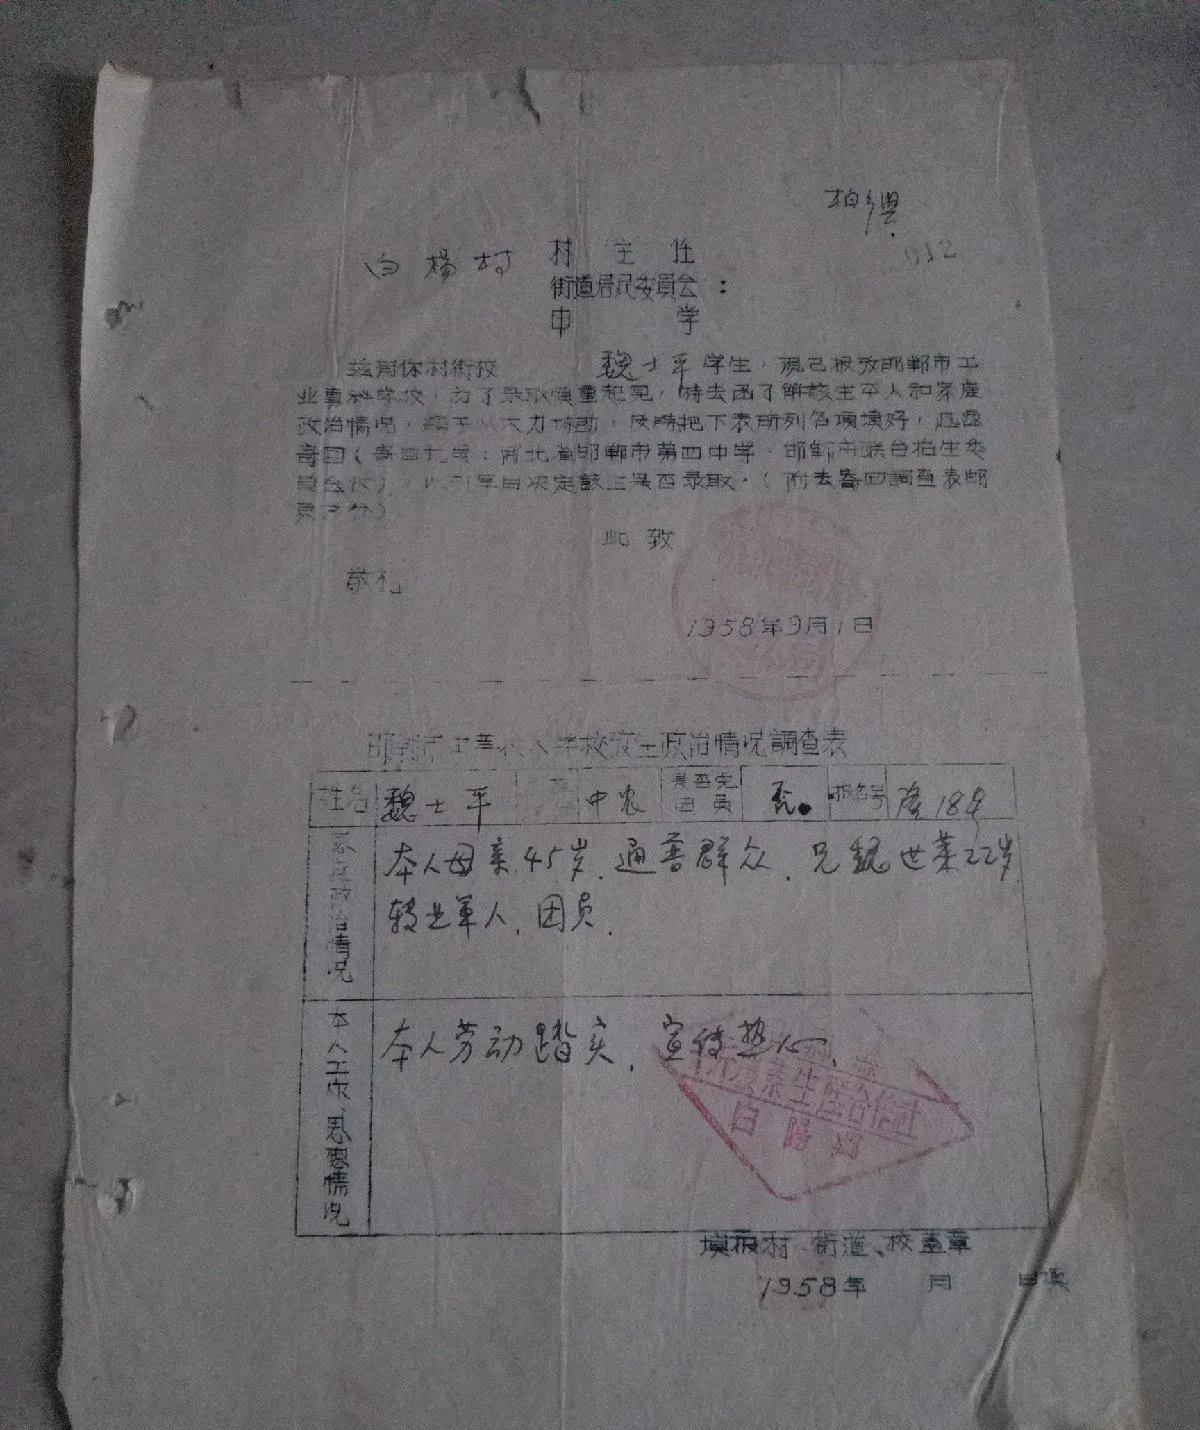 柏鄉
012
白楊村 村主任
街道居民委員会：
中学
兹有你村街校 魏士平学生，現已报攷邯郸市工
业專科学校，为了录取慎重起見，特去函了解該生本人和家庭
政治情况，請予以大力协助，及時把下表所列各項填好，迅速
寄回（寄回地点：河北省邯郸市第四中学，邯郸市联合招生委
員会收），以利早日决定該生是否录取。（附去寄回調查表邮
票 分）
此致
敬礼
1958年9月1日
邯郸市 学校攷生政治情况調查表
姓名 魏士平 中农 是否党团員 否 报名号 189
家庭政治情况
本人母亲45岁，通普群众，兄魏世荣22岁
转业軍人，团员．
本人工作、思想情况
本人劳动踏实，宣传热心，
农業生産合作社
填報村、街道、校盖章
1958年 月 日填